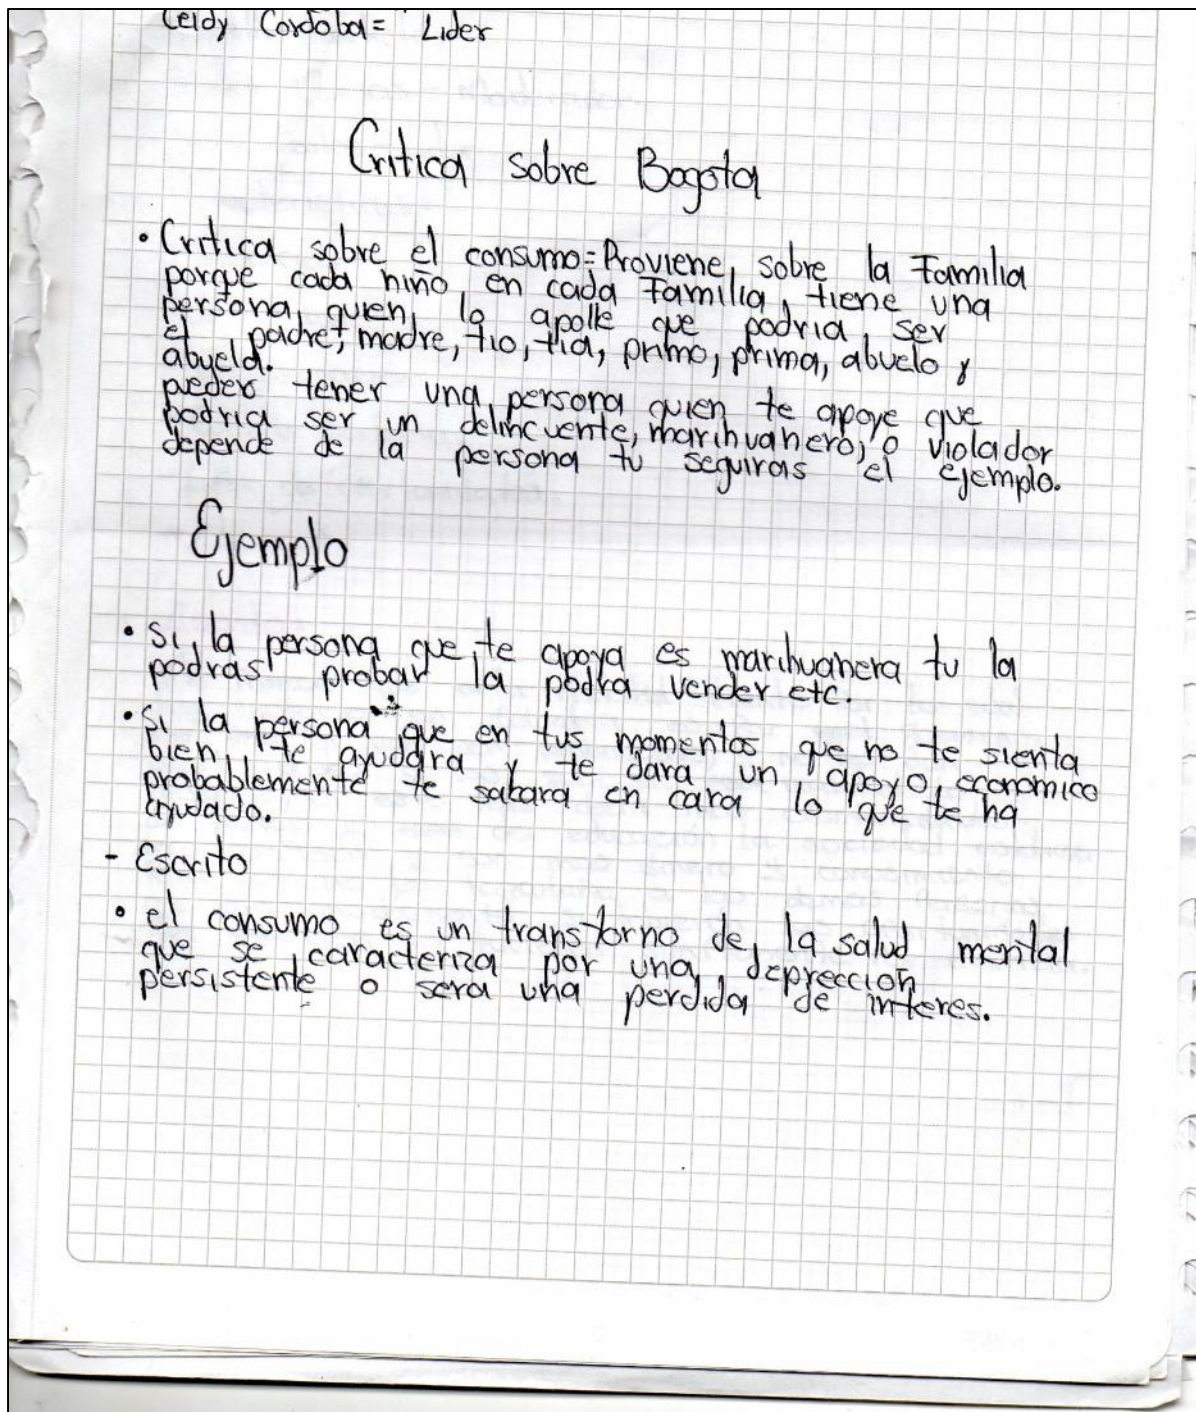 Leidy Cordoba = Lider
Critica sobre Bogota
• Critica sobre el consumo = Proviene, sobre la Familia
porque cada niño, en cada Familia, tiene una
persona, quien, lo apolle que podria, ser
el padre, madre, tio, tia, primo, prima, abuelo y
abuela.
puedes tener una persona quien te apoye que
podria ser un delincuente, marihuanero, o violador
depende de la persona tu seguiras el ejemplo.
Ejemplo
• Si, la persona que te apoya es marihuanera tu la
podras probar la podra vender etc.
• Si la persona que en tus momentos que no te sienta
bien, te ayudara y te dara un apoyo economico
probablemente te sacara en cara lo que te ha
ayudado.
- Escrito
• el consumo es un transtorno de la salud mental
que se caracteriza por una depreccion
persistente o sera una perdida de interes.